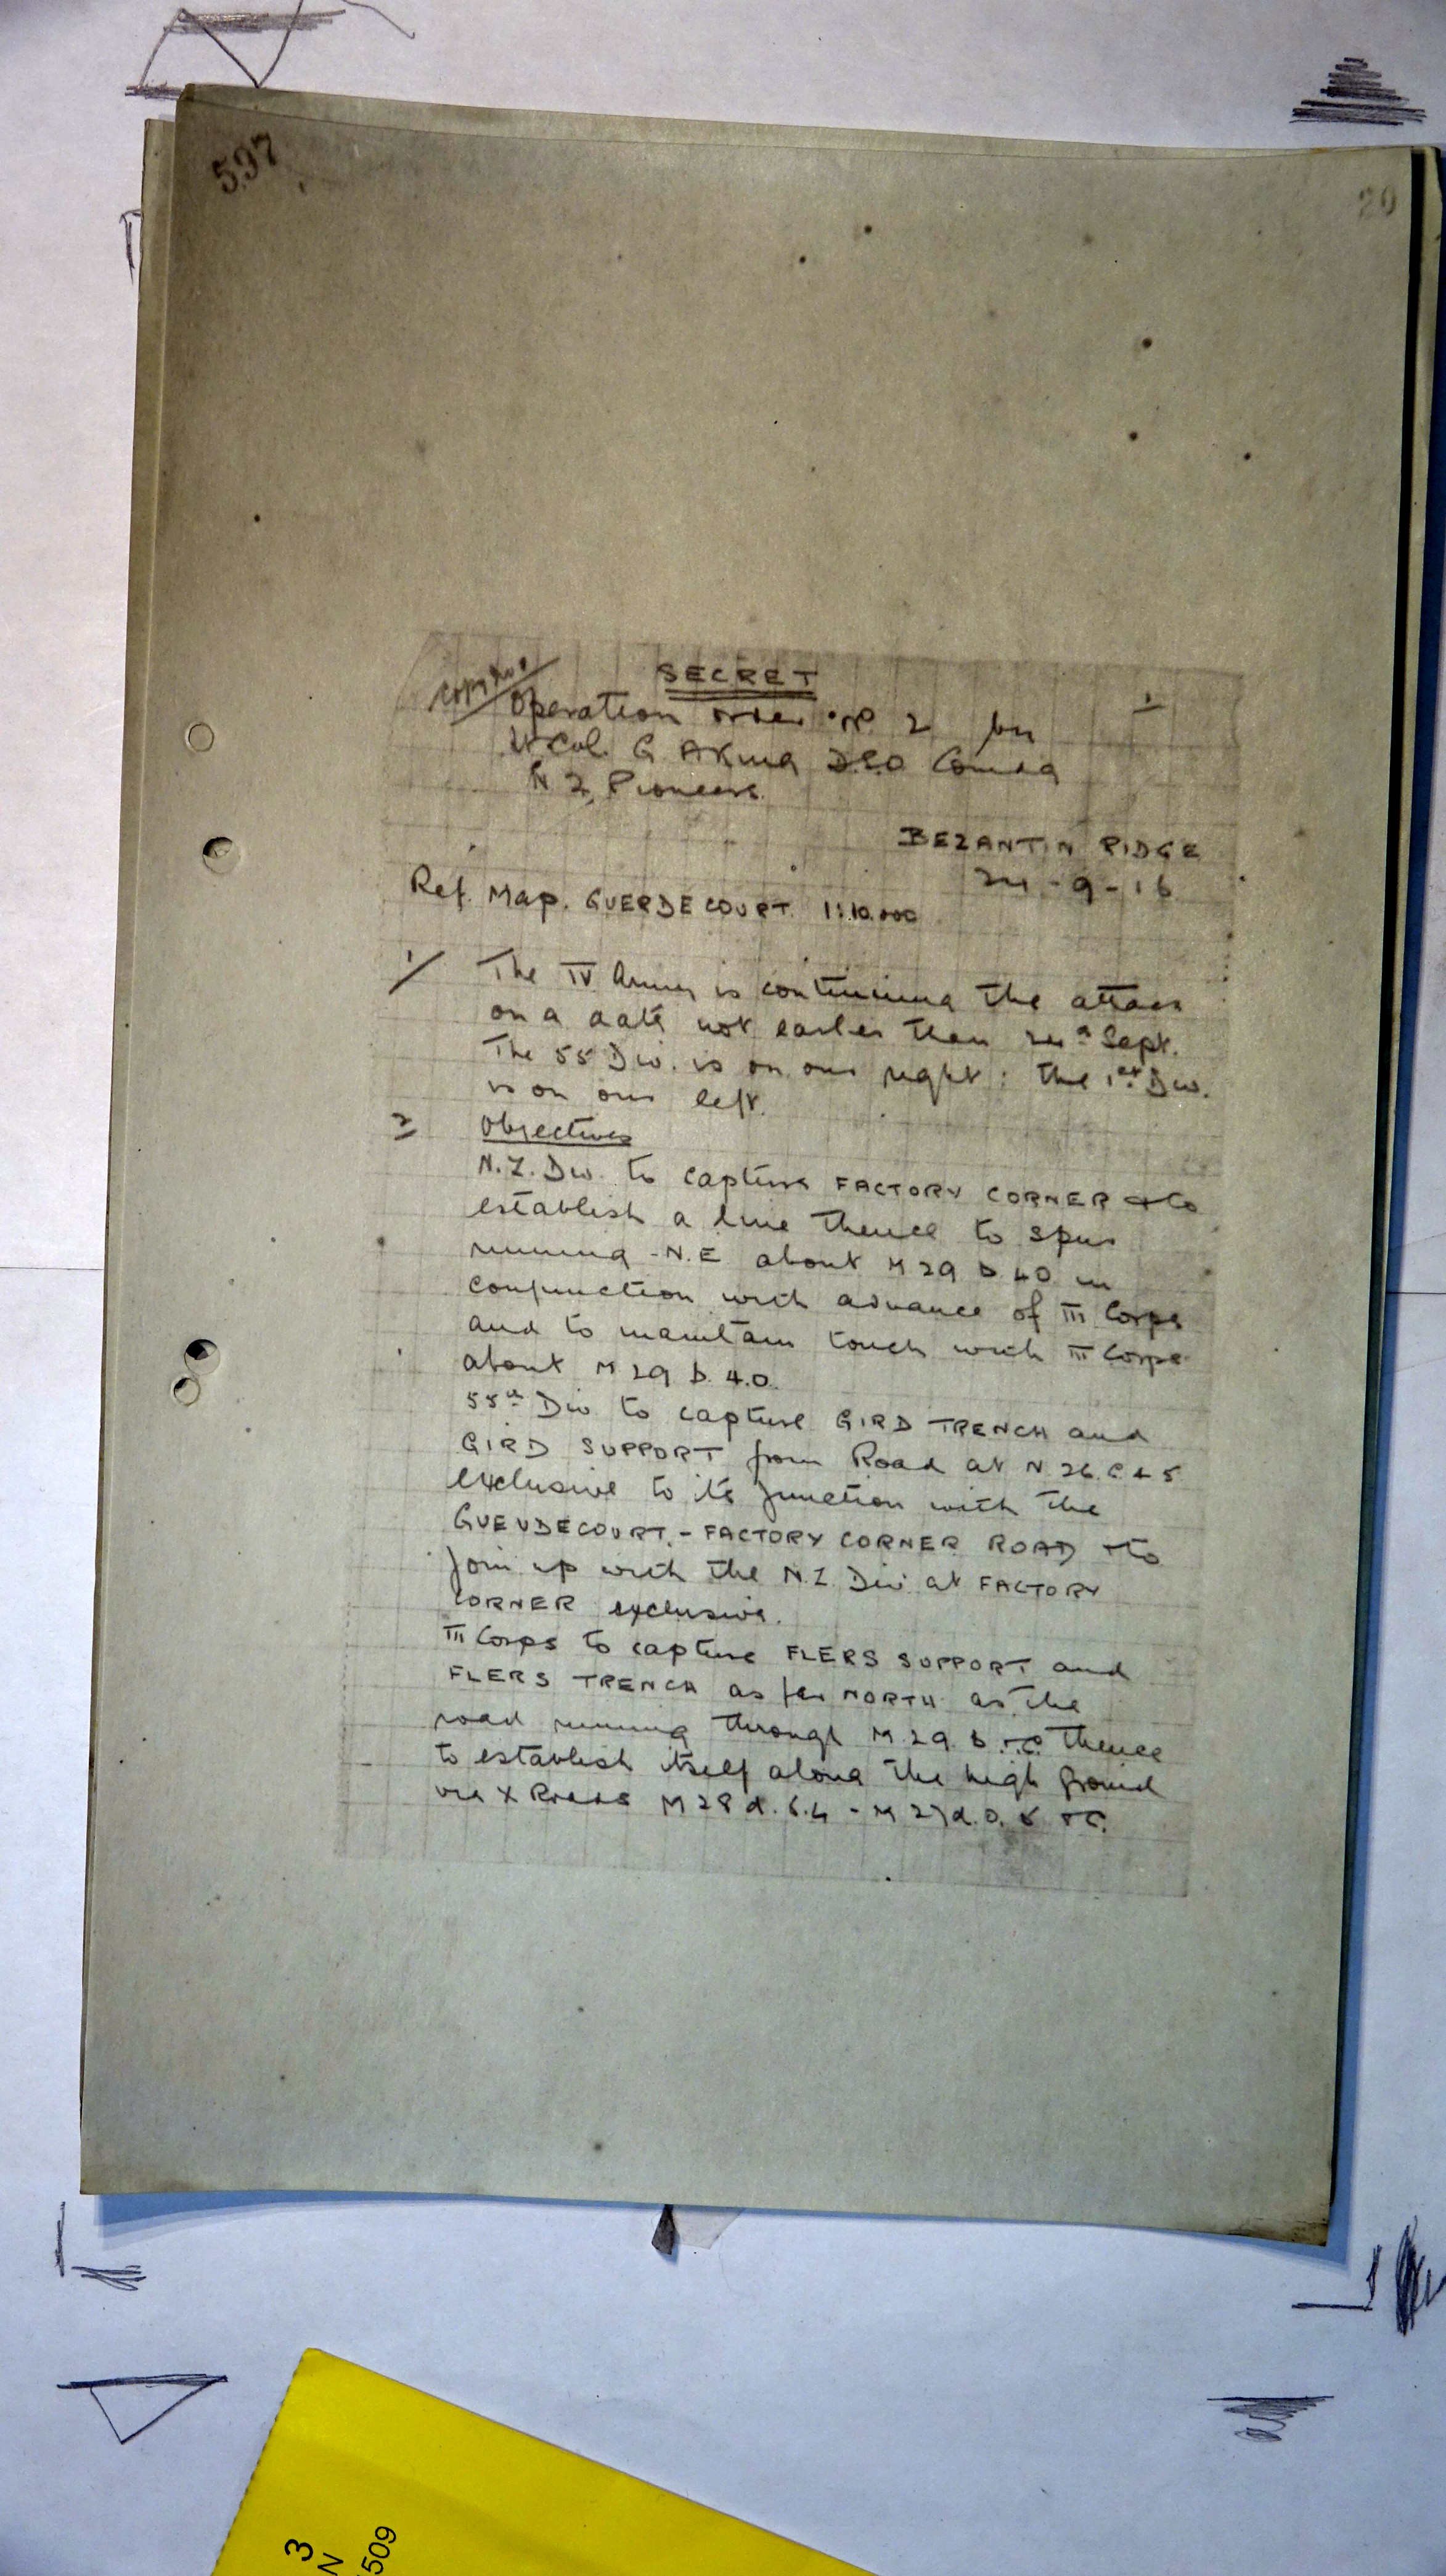 597
20
Copy No. 1
SECRET
1
Operation order No 2 by
Lt Col. G A King D.S.O Comdg
N Z Pioneers.
BEZANTIN RIDGE
24-9-16
Ref. Map. GUERDECOURT 1:10.000
1/ The IV Army is continuing the attack
on a date not earlier than 24th Sept.
The 55 Div. is on our right: the 1st Div.
is on our left.
2 Objectives
N.Z. Div. to capture FACTORY CORNER & to
establish a line thence to spur
running N.E about M 29 b 40 in
conjunction with advance of III Corps
and to maintain touch with III Corps
about M 29 b. 4.0.
55th Div to capture GIRD TRENCH and
GIRD SUPPORT from Road at N 26.
exclusive to its junction with the
GUEUDECOURT.-FACTORY CORNER ROAD & to
join up with the N.Z Div. at FACTORY
CORNER exclusive.
III Corps to capture FLERS SUPPORT and
FLERS TRENCH as far NORTH as the
road running through M.29.b. thence
to establish itself along the high ground
via X Roads M 28 d. 6.4 -
3
N
509